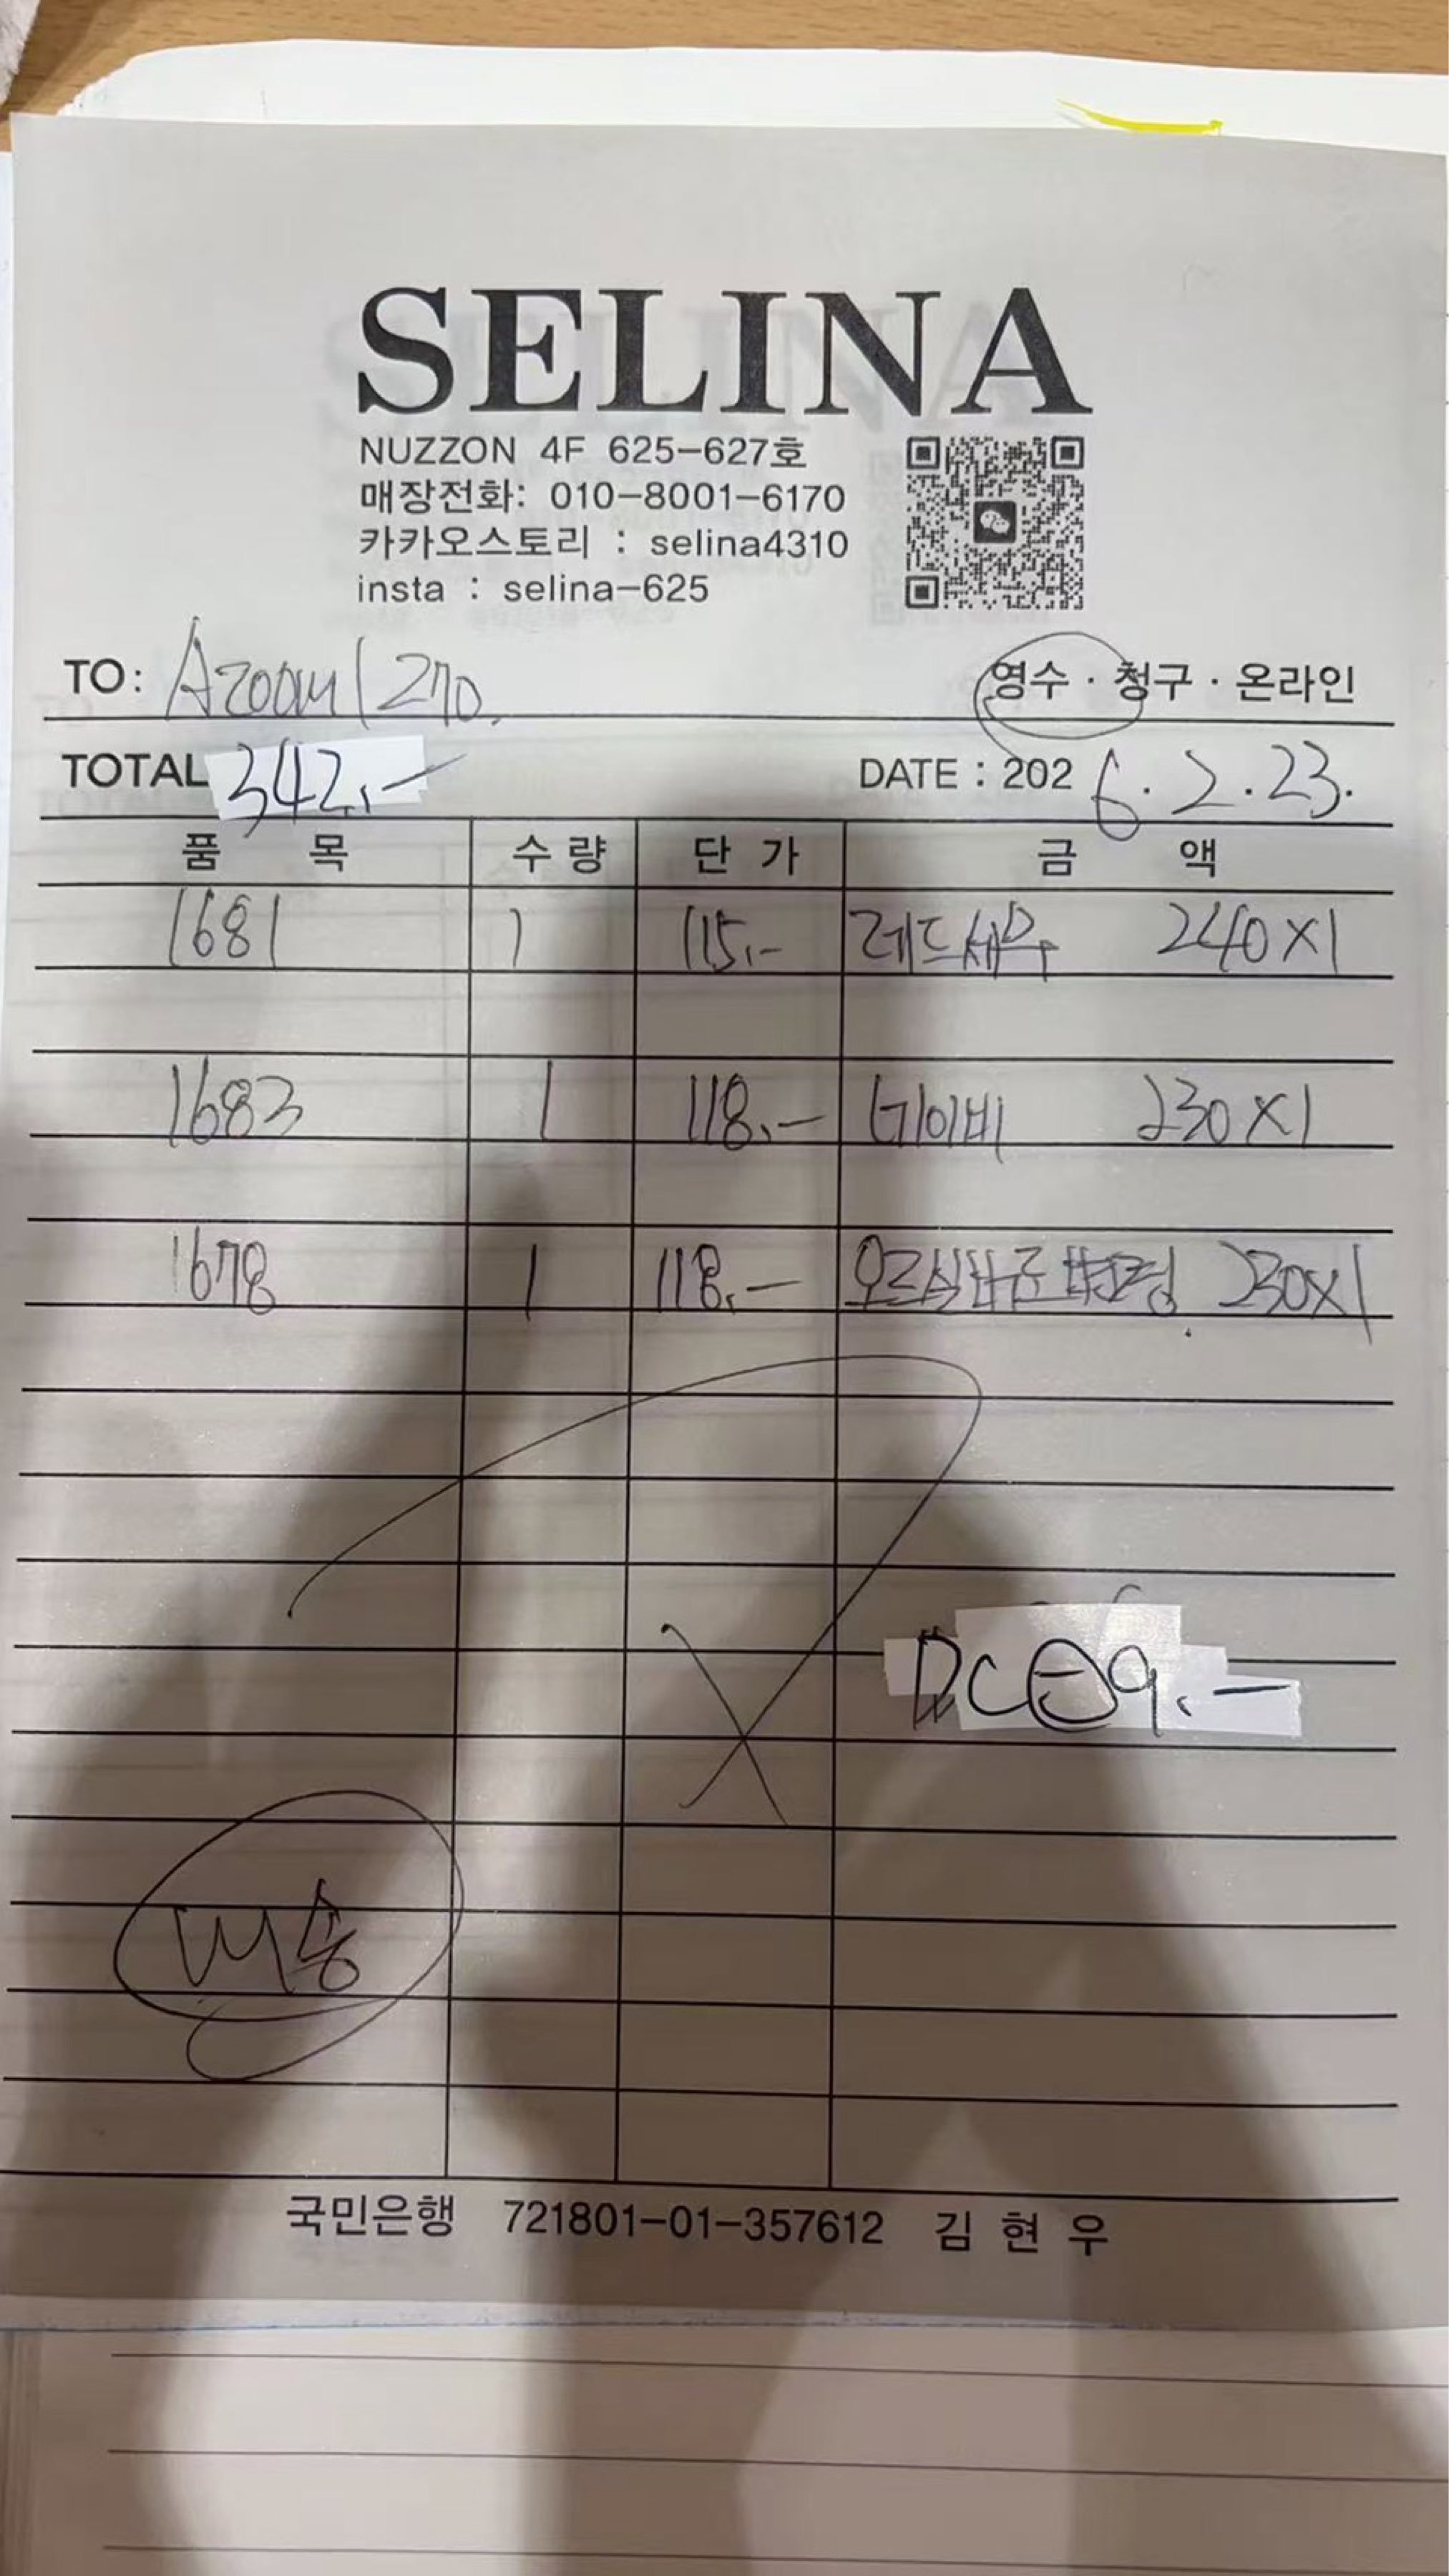 SELINA
NUZZON 4F 625-627호
매장전화: 010-8001-6170
카카오스토리 : selina4310
insta : selina-625
TO: Azoom 1270.
영수 · 청구 · 온라인
TOTAL 342.-
DATE : 2026.2.23.
품 목 수량 단가 금 액
1681 1 115.- 레드세무 240X1
1683 1 118.- 네이비 230X1
1678 1 118.- 230X1
DC⊖9.-
국민은행 721801-01-357612 김현우